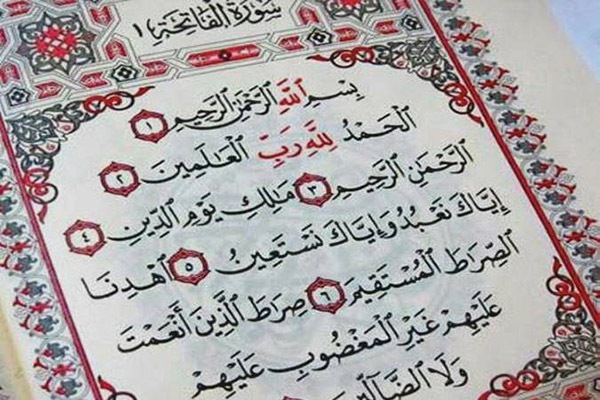 سُورَةُ ٱلْفَاتِحَةِ ١
بِسْمِ ٱللَّهِ ٱلرَّحْمَٰنِ ٱلرَّحِيمِ ١
ٱلْحَمْدُ لِلَّهِ رَبِّ ٱلْعَالَمِينَ ٢
ٱلرَّحْمَٰنِ ٱلرَّحِيمِ ٣ مَالِكِ يَوْمِ ٱلدِّينِ ٤
إِيَّاكَ نَعْبُدُ وَإِيَّاكَ نَسْتَعِينُ ٥ ٱهْدِنَا
ٱلصِّرَاطَ ٱلْمُسْتَقِيمَ ٦ صِرَاطَ ٱلَّذِينَ أَنْعَمْتَ
عَلَيْهِمْ غَيْرِ ٱلْمَغْضُوبِ عَلَيْهِمْ
وَلَا ٱلضَّآلِّينَ